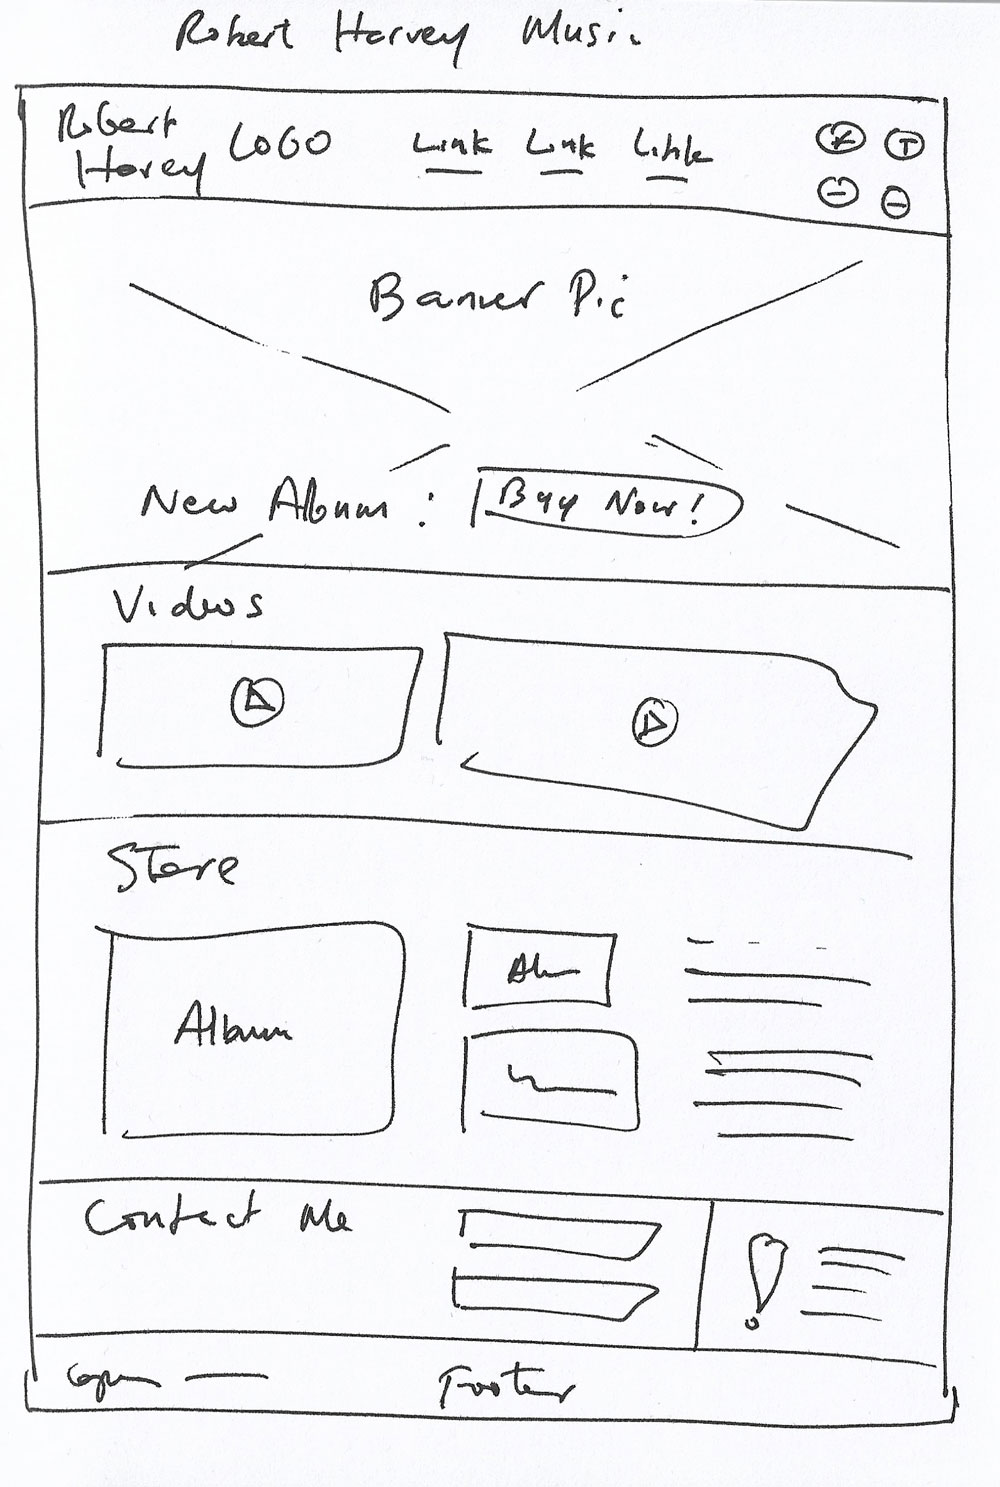 Robert Harvey Music
Robert
Harvey
LOGO Link Link Link
T
Banner Pic
New Album : Buy Now!
Videos
Store
Album
Contact Me
Footer